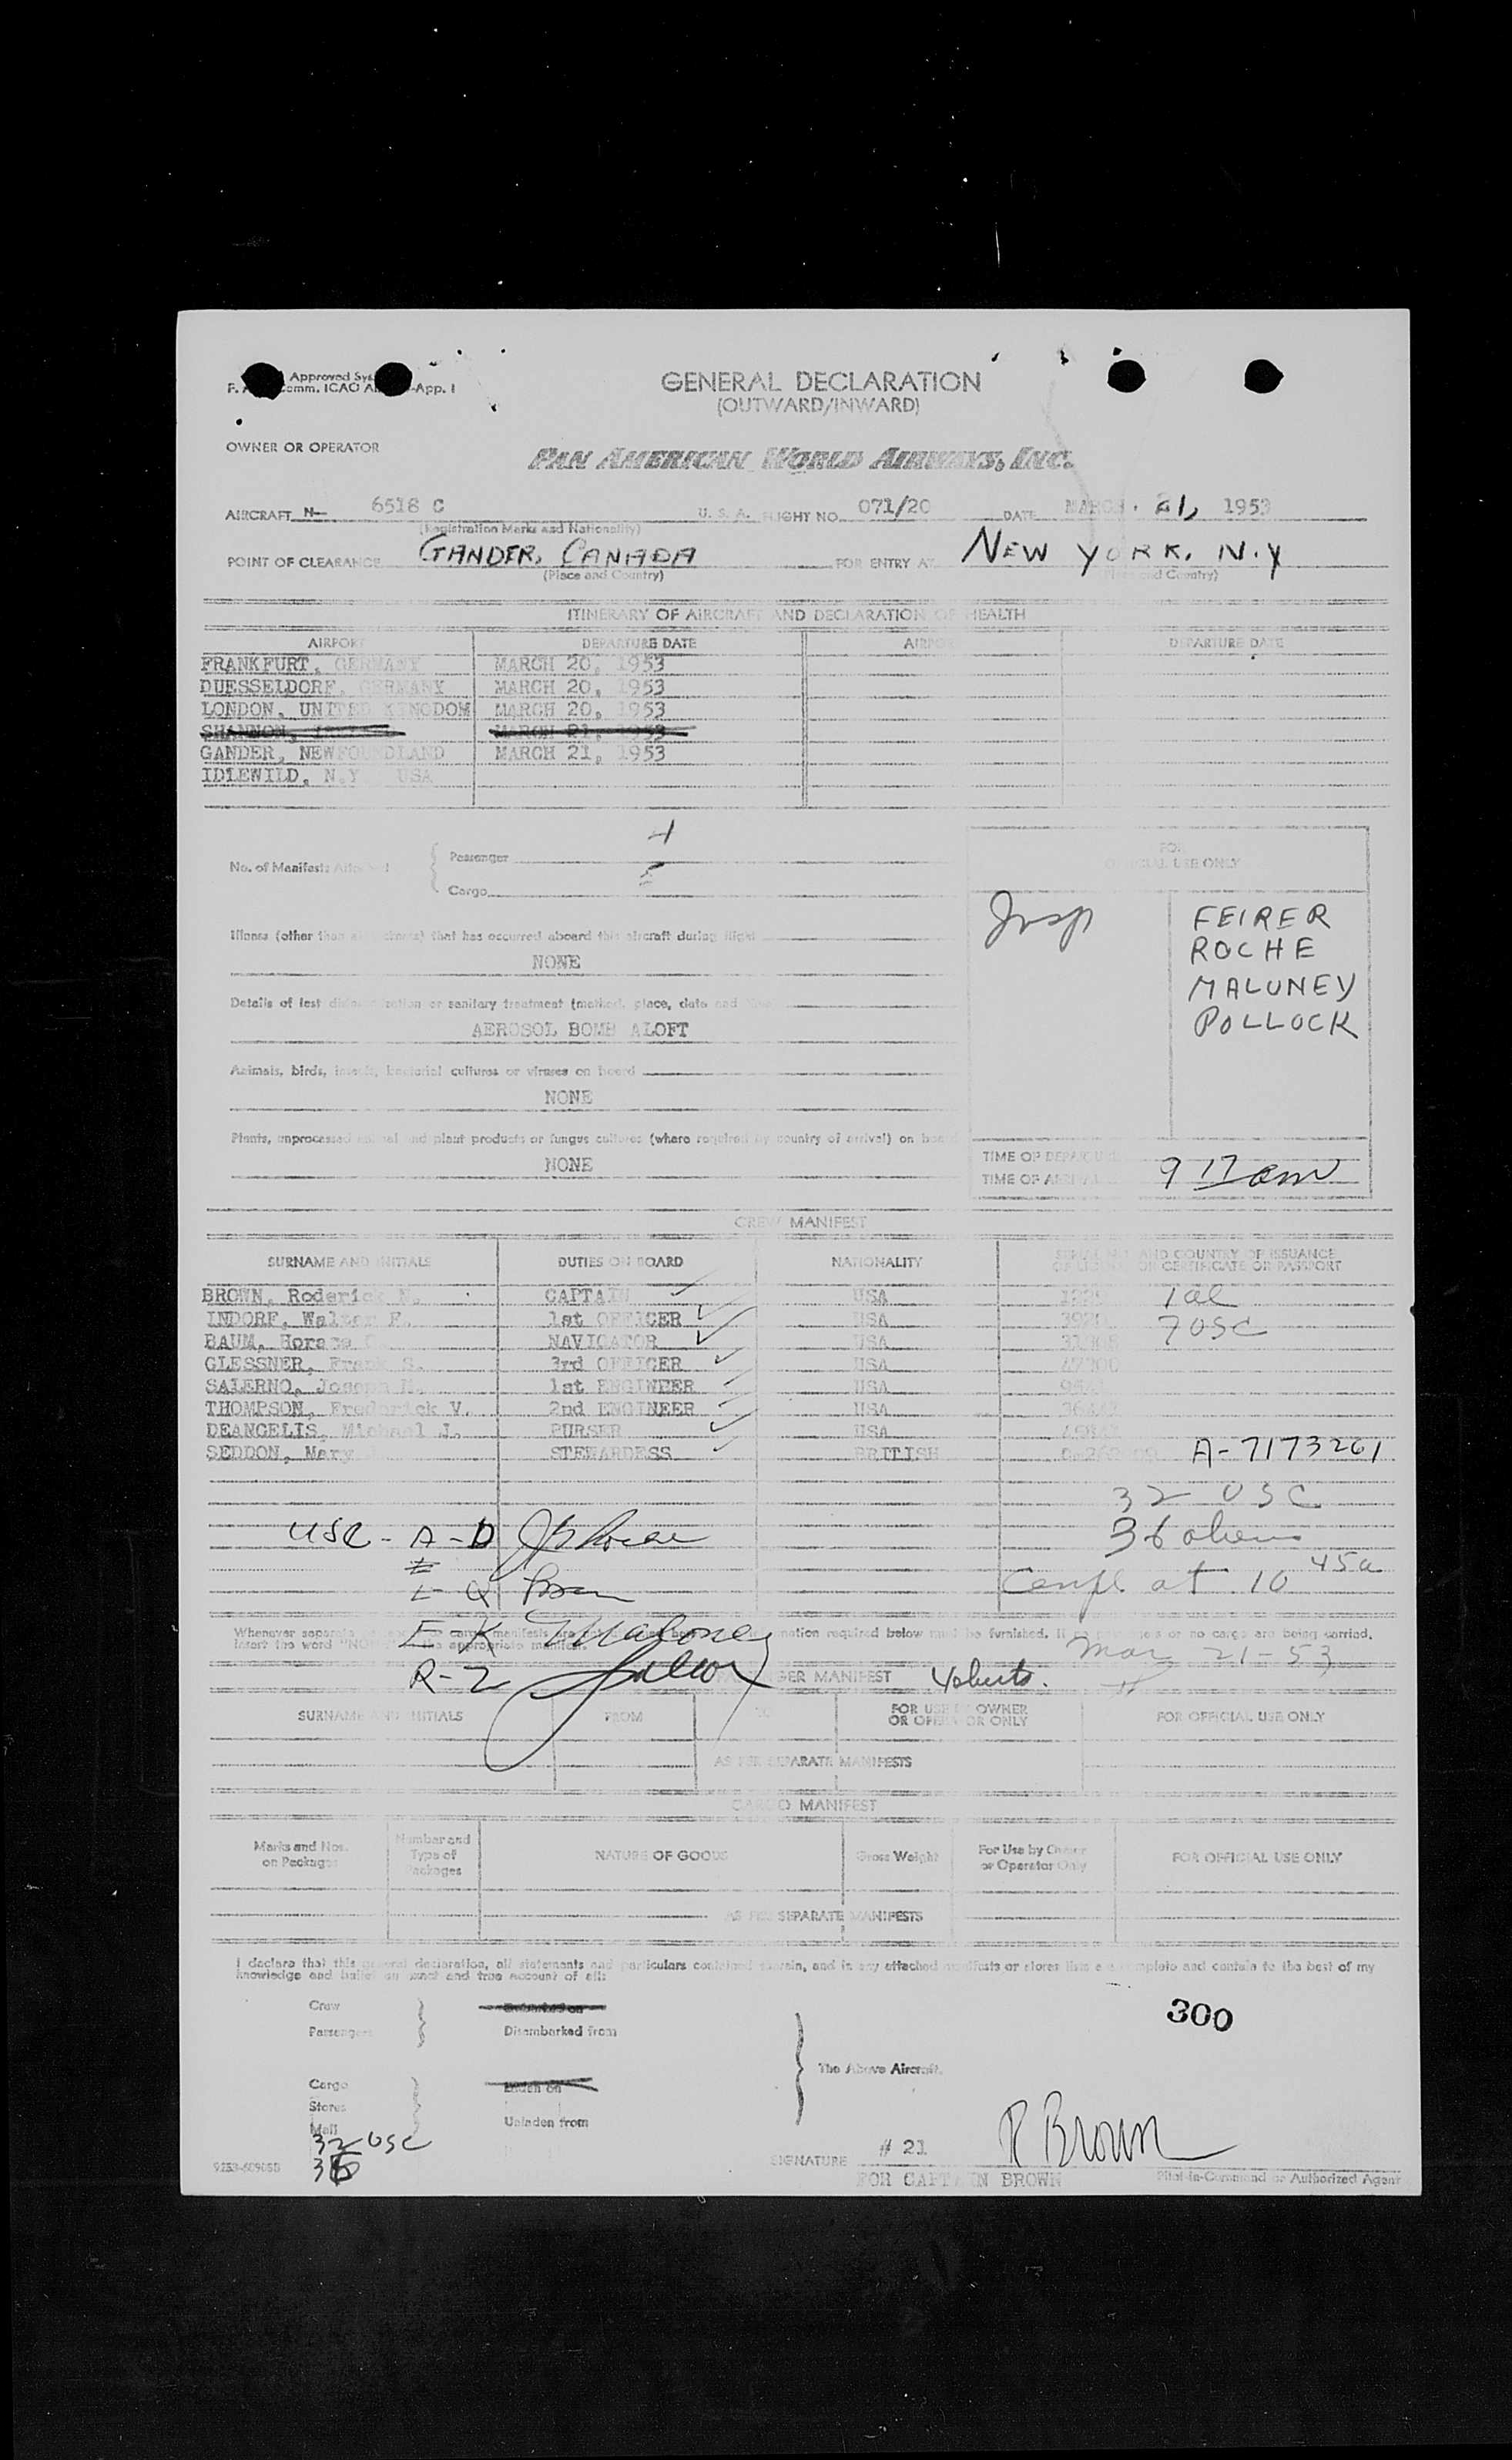 Approved
Comm. ICAO
App. I
GENERAL DECLARATION
(OUTWARD/INWARD)
OWNER OR OPERATOR
PAN AMERICAN WORLD AIRWAYS, INC.
AIRCRAFT N- 6518 C U. S. A. FLIGHT NO. 071/20 DATE MARCH 21, 1953
(Registration Marks and Nationality)
POINT OF CLEARANCE GANDER, CANADA FOR ENTRY AT NEW YORK, N.Y
(Place and Country) (Place and Country)
ITINERARY OF AIRCRAFT AND DECLARATION OF HEALTH
AIRPORT DEPARTURE DATE AIRPORT DEPARTURE DATE
FRANKFURT, GERMANY MARCH 20, 1953
DUESSELDORF, GERMANY MARCH 20, 1953
LONDON, UNITED KINGDOM MARCH 20, 1953
SHANNON, MARCH 21, 1953
GANDER, NEWFOUNDLAND MARCH 21, 1953
IDLEWILD, N.Y. USA
No. of Manifests Attached
Passenger
Cargo
FOR
OFFICIAL USE ONLY
Insp
FEIRER
ROCHE
MALONEY
POLLOCK
Illness (other than airsickness) that has occurred aboard this aircraft during flight
NONE
Details of last disinsectization or sanitary treatment (method, place, date and time)
AEROSOL BOMB ALOFT
Animals, birds, insects, bacterial cultures or viruses on board
NONE
Plants, unprocessed animal and plant products or fungus cultures (where required by country of arrival) on board
NONE
TIME OF DEPARTURE
TIME OF ARRIVAL 9 17 am
CREW MANIFEST
SURNAME AND INITIALS DUTIES ON BOARD NATIONALITY SERIAL NO. AND COUNTRY OF ISSUANCE
OF LICENSE OR CERTIFICATE OR PASSPORT
BROWN, Roderick N. CAPTAIN USA 1al
INDORF, Walter F. 1st OFFICER USA 7 USC
BAUM, Horace NAVIGATOR USA
GLESSNER, Frank S. 3rd OFFICER USA
SALERNO, Joseph 1st ENGINEER USA
THOMPSON, Frederick V. 2nd ENGINEER USA
DEANGELIS, Michael J. PURSER USA
SEDDON, Mary STEWARDESS BRITISH A-7173261
32 USC
USC - A - D 36 aliens
L - Q Compl at 10 45a
E K Maloney
Whenever separate cargo manifests are required below must be furnished. If no passengers or no cargo are being carried,
insert the word "NONE" in the appropriate manifest.
Mar 21-53
R-Z PASSENGER MANIFEST
SURNAME AND INITIALS FROM TO FOR USE BY OWNER
OR OPERATOR ONLY FOR OFFICIAL USE ONLY
AS PER SEPARATE MANIFESTS
CARGO MANIFEST
Marks and Nos.
on Packages
Number and
Type of
Packages
NATURE OF GOODS
Gross Weight
For Use by Owner
or Operator Only
FOR OFFICIAL USE ONLY
AS PER SEPARATE MANIFESTS
I declare that this general declaration, all statements and particulars contained therein, and in any attached manifests or stores lists are complete and contain to the best of my
knowledge and belief an exact and true account of all:
Crew Embarked on
Passengers Disembarked from
The Above Aircraft.
Cargo Laden on
Stores
Mail Unladen from
300
32 USC
36
SIGNATURE # 21 R Brown
FOR CAPTAIN BROWN Pilot-in-Command or Authorized Agent